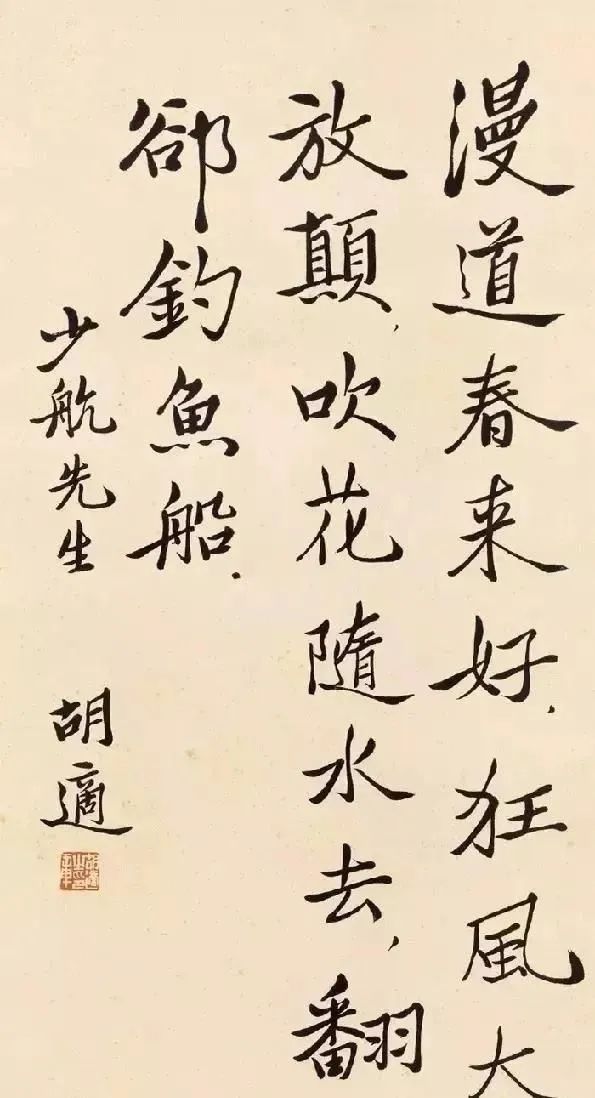 漫道春来好，狂風大
放顛，吹花隨水去，翻
郤釣魚船．
少航先生
胡適